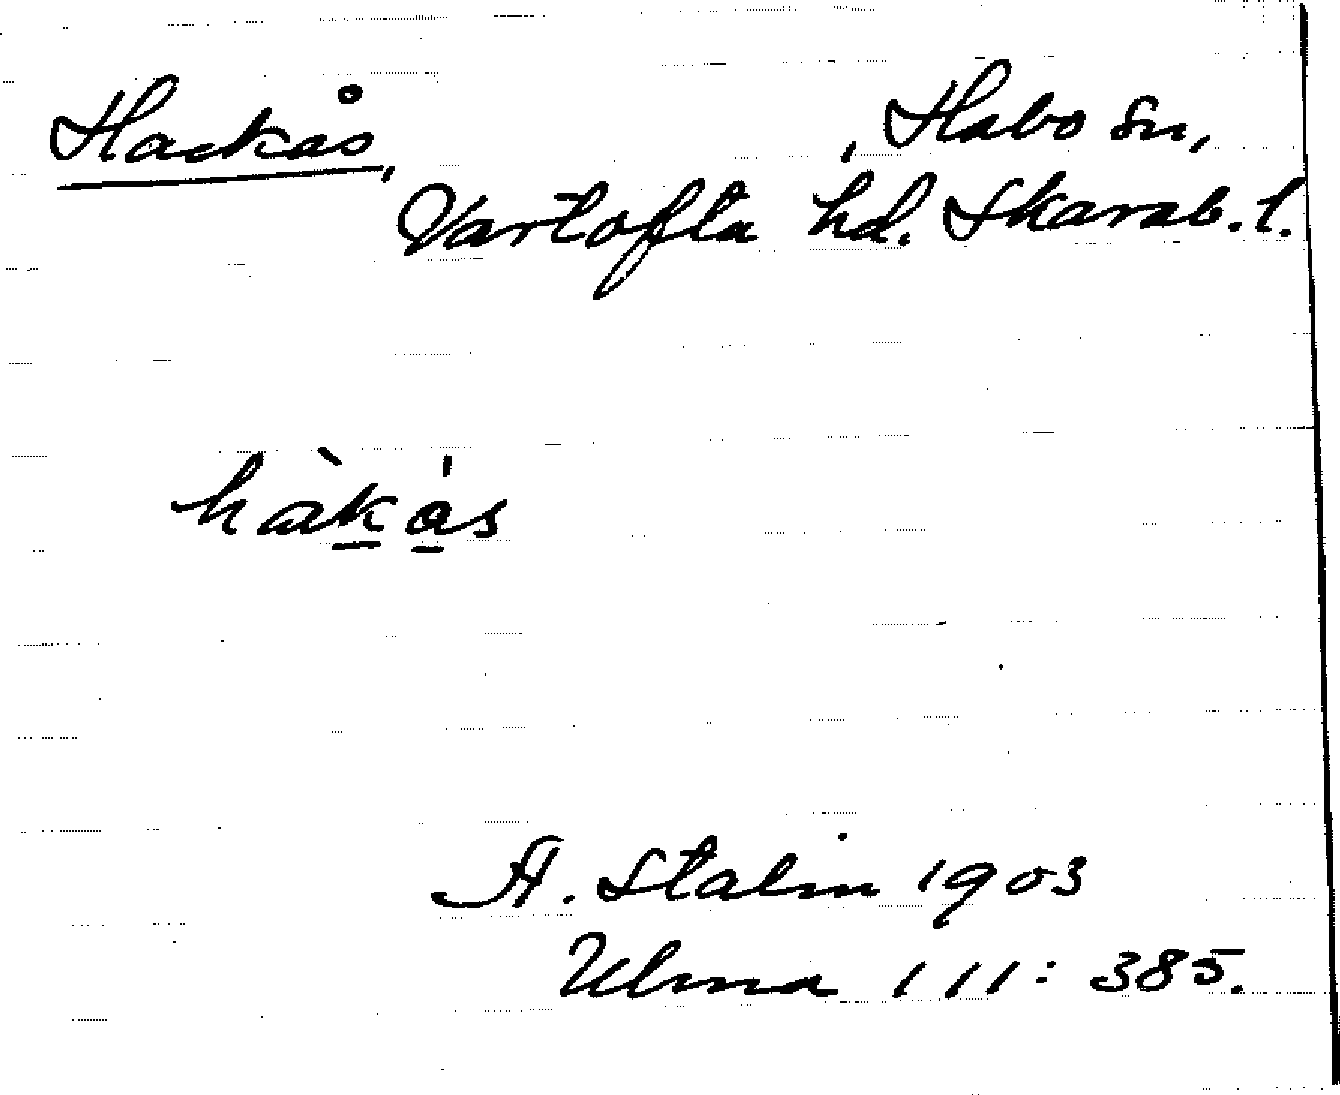 Hackås, , Habo sn,
Vartofta hd. Skarab. l.
hàkås
A. Stalin 1903
Ulma 111: 385.